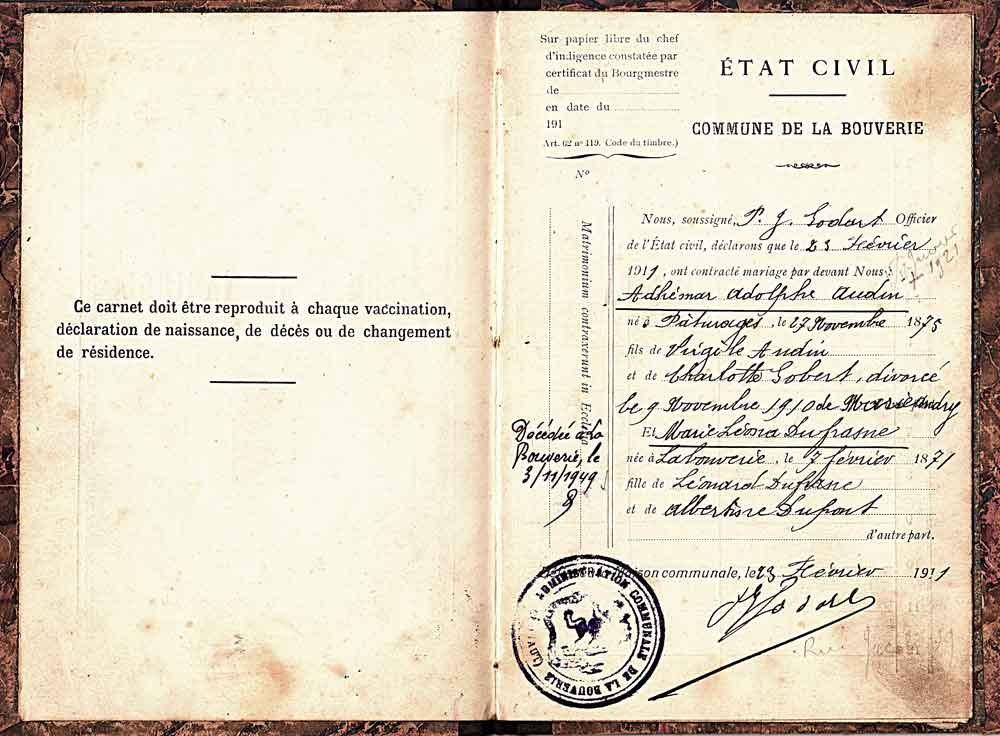 Ce carnet doit être reproduit à chaque vaccination,
déclaration de naissance, de décès ou de changement
de résidence.
Sur papier libre du chef
d'indigence constatée par
certificat du Bourgmestre
de
en date du
191
Art. 62 nº 119. Code du timbre.)
Nº
ÉTAT CIVIL
COMMUNE DE LA BOUVERIE
Matrimonium contraxerunt in Ecclesia
Nous, soussigné, P. J. Godart Officier
de l'État civil, déclarons que le 23 Février
1911, ont contracté mariage par devant Nous
Adhémar Adolphe Audin
né à Pâturages, le 27 Novembre 1875
fils de Virgile Audin
et de Charlotte Gobert, divorcé
le 9 Novembre 1910 de Marie
Et Marie Léona Dufrasne
née à Labouverie, le 7 février 1871
fille de Léonard Dufrasne
et de Albertine Dupont
d'autre part.
Décédée à La
Bouverie, le
3/11/1949
Maison communale, le 23 Février 1911
ADMINISTRATION COMMUNALE DE LA BOUVERIE